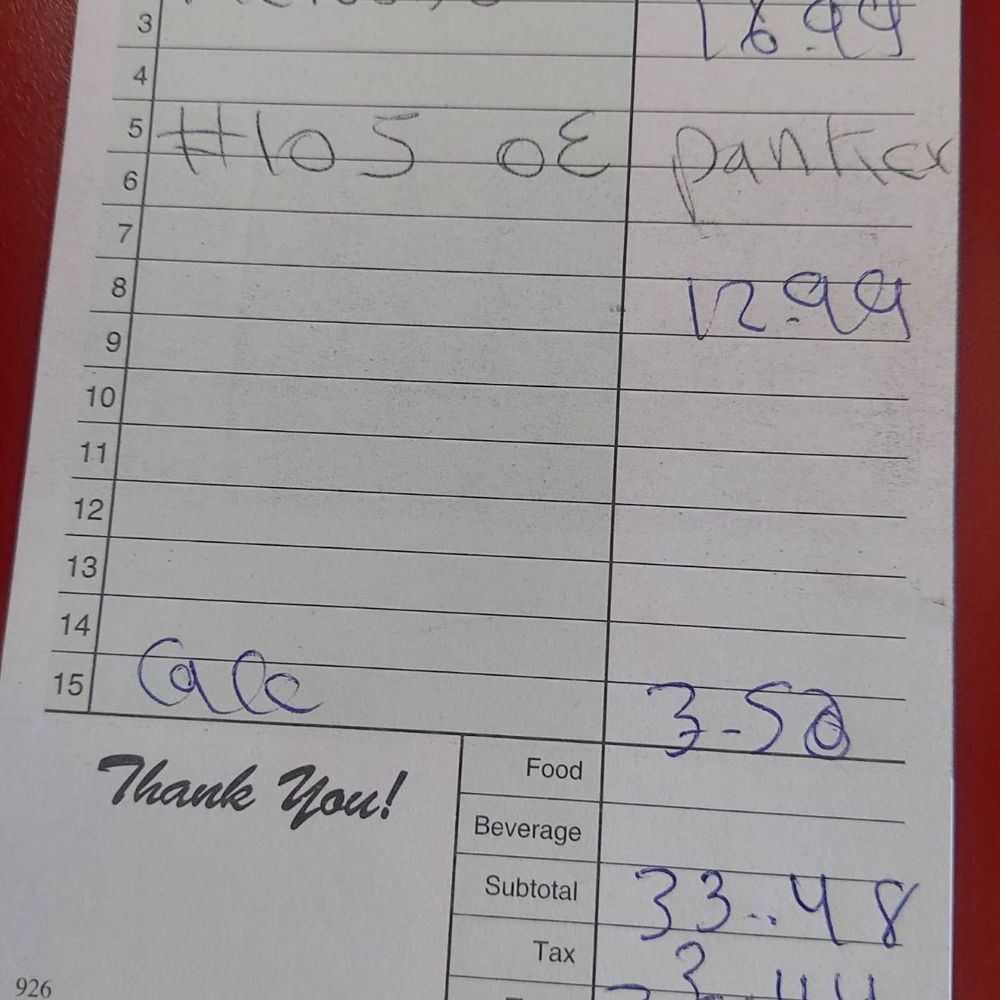 3 16.99
4
5 #105 OE panticx
6
7
8 12.99
9
10
11
12
13
14
15 Cafe 3-50
Thank You!
Food
Beverage
Subtotal 33..48
Tax 3
926